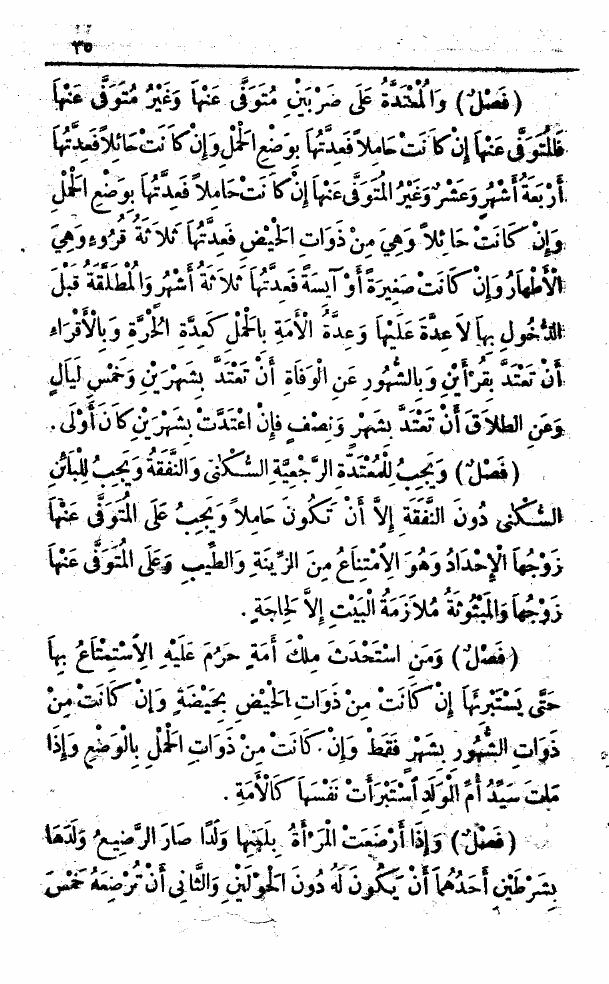 ٣٥
(فَصْلٌ) وَالْمُعْتَدَّةُ عَلَى ضَرْبَيْنِ مُتَوَفًّى عَنْهَا وَغَيْرُ مُتَوَفًّى عَنْهَا
فَالْمُتَوَفَّى عَنْهَا إِنْ كَانَتْ حَامِلاً فَعِدَّتُهَا بِوَضْعِ الْحَمْلِ وَإِنْ كَانَتْ حَائِلاً فَعِدَّتُهَا
أَرْبَعَةُ أَشْهُرٍ وَعَشْرٌ وَغَيْرُ الْمُتَوَفَّى عَنْهَا إِنْ كَانَتْ حَامِلاً فَعِدَّتُهَا بِوَضْعِ الْحَمْلِ
وَإِنْ كَانَتْ حَائِلاً وَهِيَ مِنْ ذَوَاتِ الْحَيْضِ فَعِدَّتُهَا ثَلَاثَةُ قُرُوءٍ وَهِيَ
الْأَطْهَارُ وَإِنْ كَانَتْ صَغِيرَةً أَوْ آيِسَةً فَعِدَّتُهَا ثَلَاثَةُ أَشْهُرٍ وَالْمُطَلَّقَةُ قَبْلَ
الدُّخُولِ بِهَا لَا عِدَّةَ عَلَيْهَا وَعِدَّةُ الْأَمَةِ بِالْحَمْلِ كَعِدَّةِ الْحُرَّةِ وَبِالْأَقْرَاءِ
أَنْ تَعْتَدَّ بِقُرْأَيْنِ وَبِالشُّهُورِ عَنِ الْوَفَاةِ أَنْ تَعْتَدَّ بِشَهْرَيْنِ وَخَمْسِ لَيَالٍ
وَعَنِ الطَّلَاقِ أَنْ تَعْتَدَّ بِشَهْرٍ وَنِصْفٍ فَإِنْ اعْتَدَّتْ بِشَهْرَيْنِ كَانَ أَوْلَى .
(فَصْلٌ) وَيَجِبُ لِلْمُعْتَدَّةِ الرَّجْعِيَّةِ السُّكْنَى وَالنَّفَقَةُ وَيَجِبُ لِلْبَائِنِ
السُّكْنَى دُونَ النَّفَقَةِ إِلاَّ أَنْ تَكُونَ حَامِلاً وَيَجِبُ عَلَى الْمُتَوَفَّى عَنْهَا
زَوْجُهَا الْإِحْدَادُ وَهُوَ الِامْتِنَاعُ مِنَ الزِّينَةِ وَالطِّيبِ وَعَلَى الْمُتَوَفَّى عَنْهَا
زَوْجُهَا وَالْمَبْتُوتَةُ مُلَازَمَةُ الْبَيْتِ إِلاَّ لِحَاجَةٍ .
(فَصْلٌ) وَمَنِ اسْتَحْدَثَ مِلْكَ أَمَةٍ حَرُمَ عَلَيْهِ الِاسْتِمْتَاعُ بِهَا
حَتَّى يَسْتَبْرِئَهَا إِنْ كَانَتْ مِنْ ذَوَاتِ الْحَيْضِ بِحَيْضَةٍ وَإِنْ كَانَتْ مِنْ
ذَوَاتِ الشُّهُورِ بِشَهْرٍ فَقَطْ وَإِنْ كَانَتْ مِنْ ذَوَاتِ الْحَمْلِ بِالْوَضْعِ وَإِذَا
مَاتَ سَيِّدُ أُمِّ الْوَلَدِ اسْتَبْرَأَتْ نَفْسَهَا كَالْأَمَةِ .
(فَصْلٌ) وَإِذَا أَرْضَعَتْ الْمَرْأَةُ بِلَبَنِهَا وَلَدًا صَارَ الرَّضِيعُ وَلَدَهَا
بِشَرْطَيْنِ أَحَدُهُمَا أَنْ يَكُونَ لَهُ دُونَ الْحَوْلَيْنِ وَالثَّانِي أَنْ تُرْضِعَهُ خَمْسَ